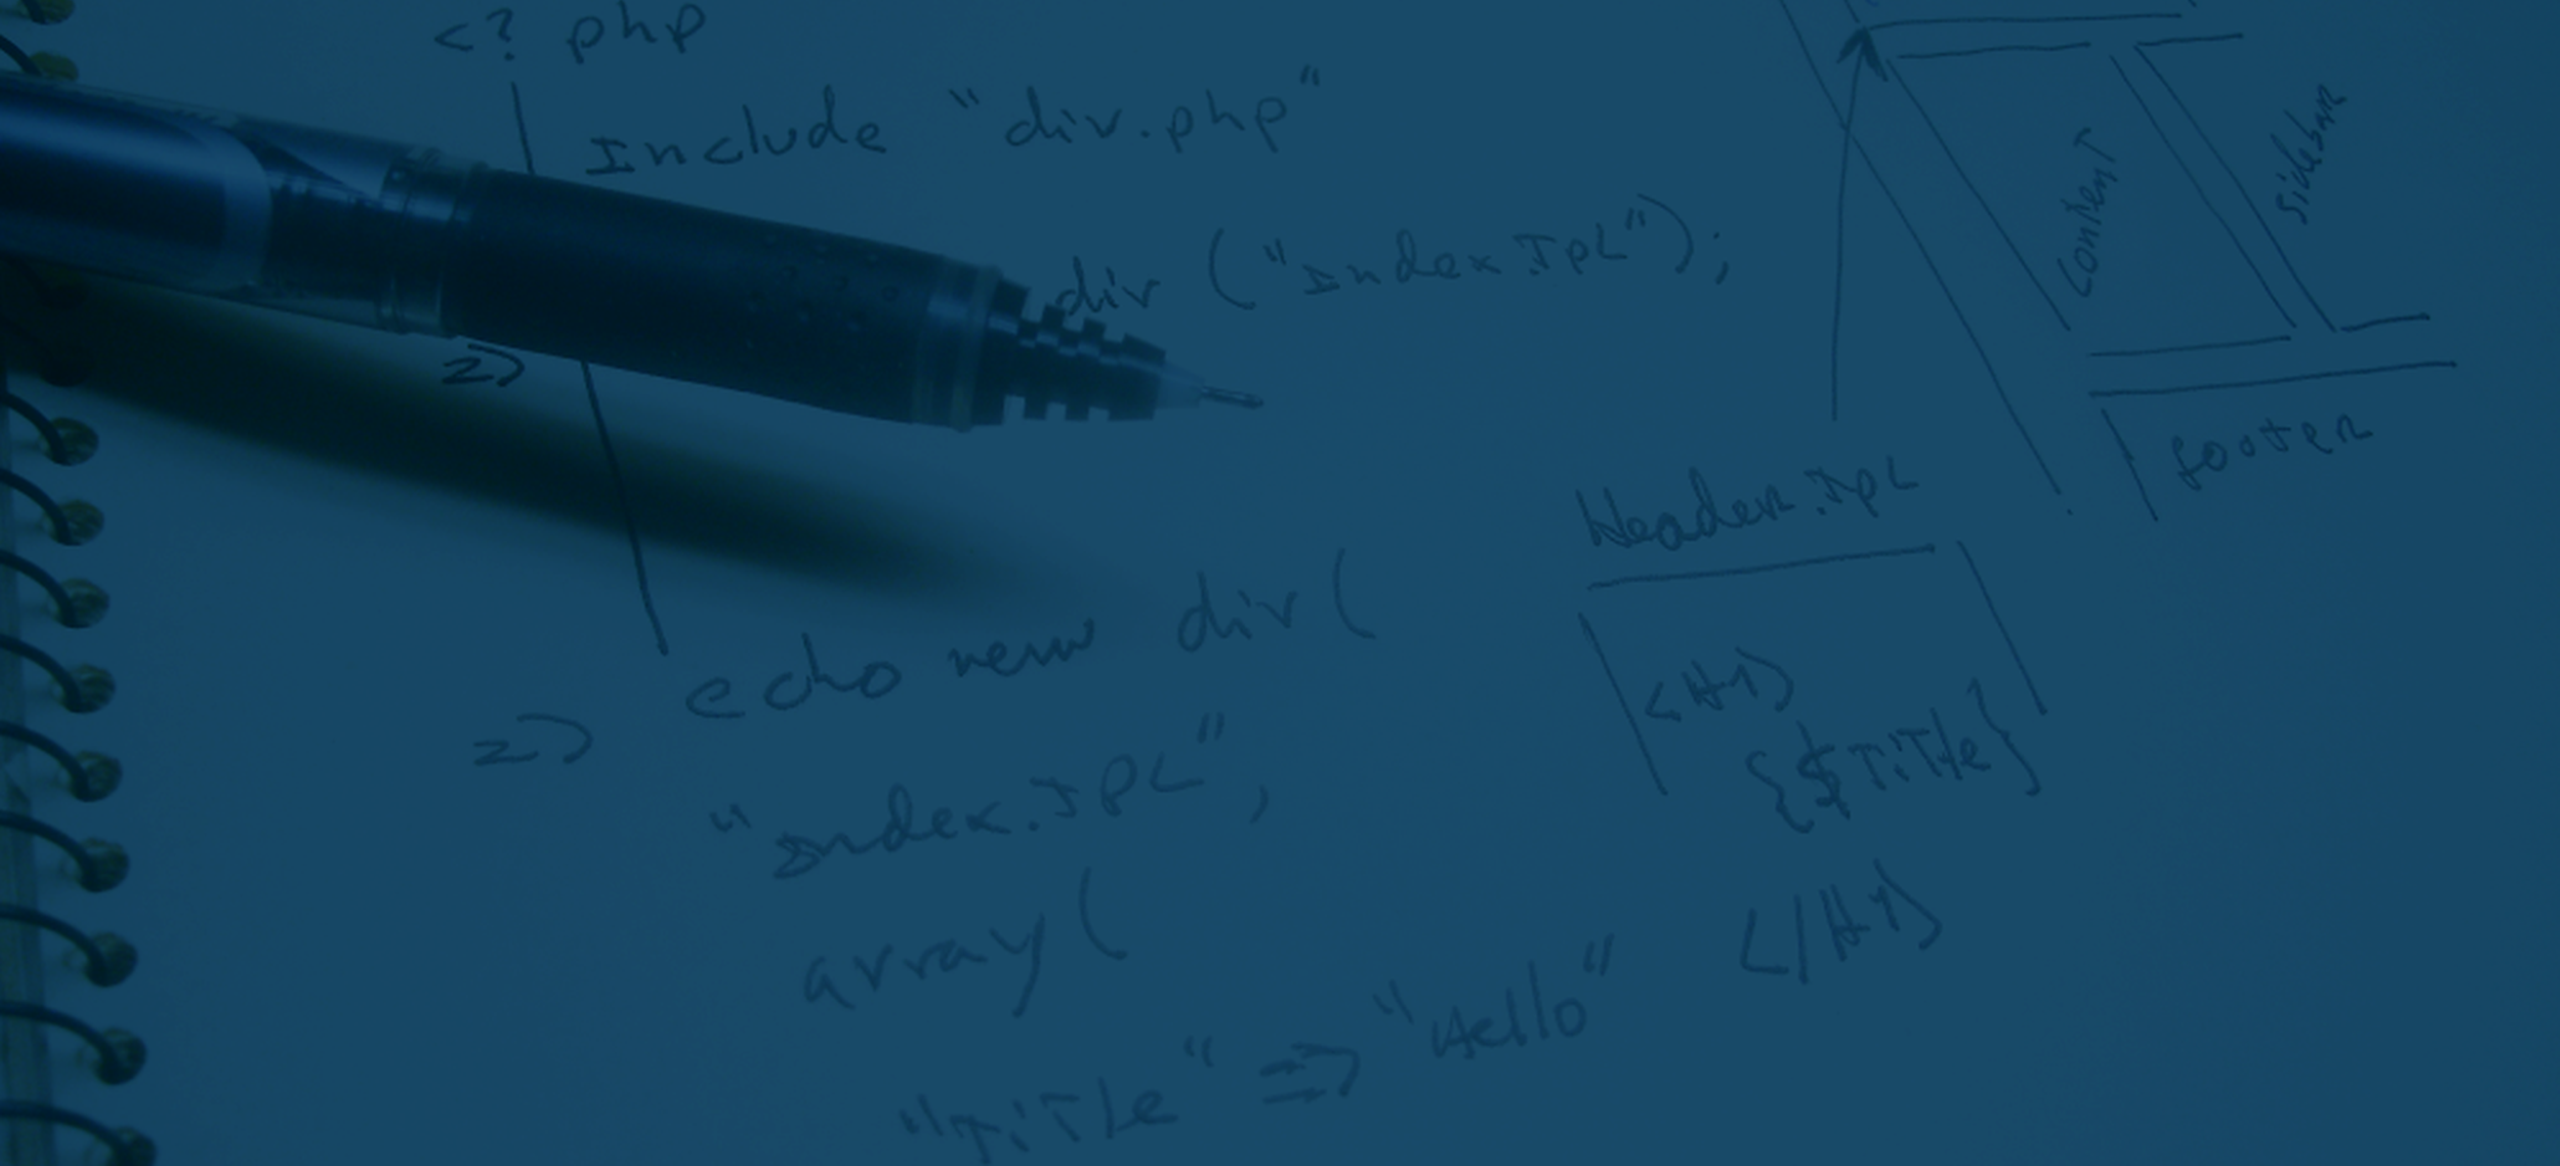 <? php
Include "div.php"
div ("Index.TPL");
2)
echo new div(
2)
"Index.TPL",
array(
"TiTle" => "Hello"
CONTENT
sidebar
footer
Header.TPL
<H1>
{$TiTle}
</H1>